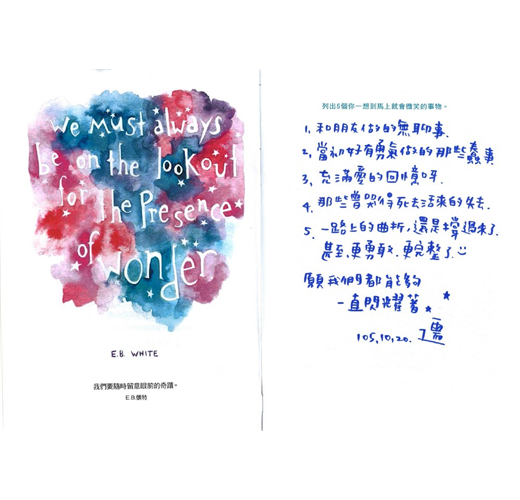 We Must always
be on the lookout
for the Presence
of wonder
E.B. WHITE
我們要隨時留意眼前的奇蹟。
E.B.懷特
列出5個你一想到馬上就會微笑的事物。
1. 和朋友做的無聊事.
2. 當初好有勇氣做的那些蠢事
3. 充滿愛的回憶呀.
4. 那些曾哭得死去活來的失去.
5. 一路上的曲折,還是撐過來了.
甚至,更勇敢、更完整了.
願我們都能夠
一直閃耀著.
105.10.20.